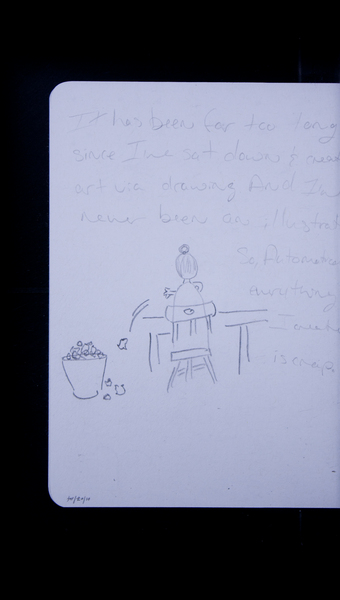 It has been far too long
since I've sat down & made
art via drawing And I've
never been an illustrat
So, Automatic
everything
I create
is crap.